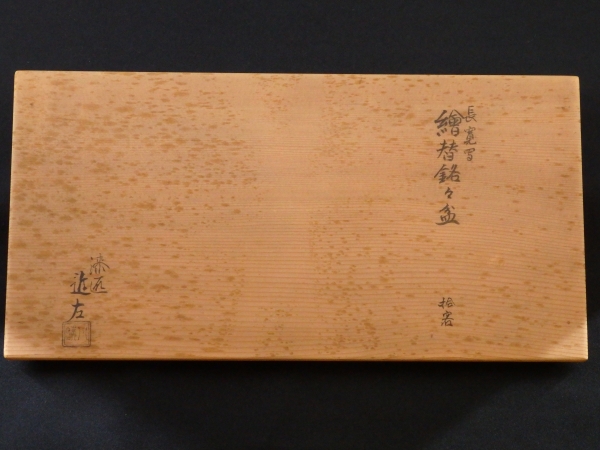 長寛写
繪替銘々盆
拾客
漆匠
近左